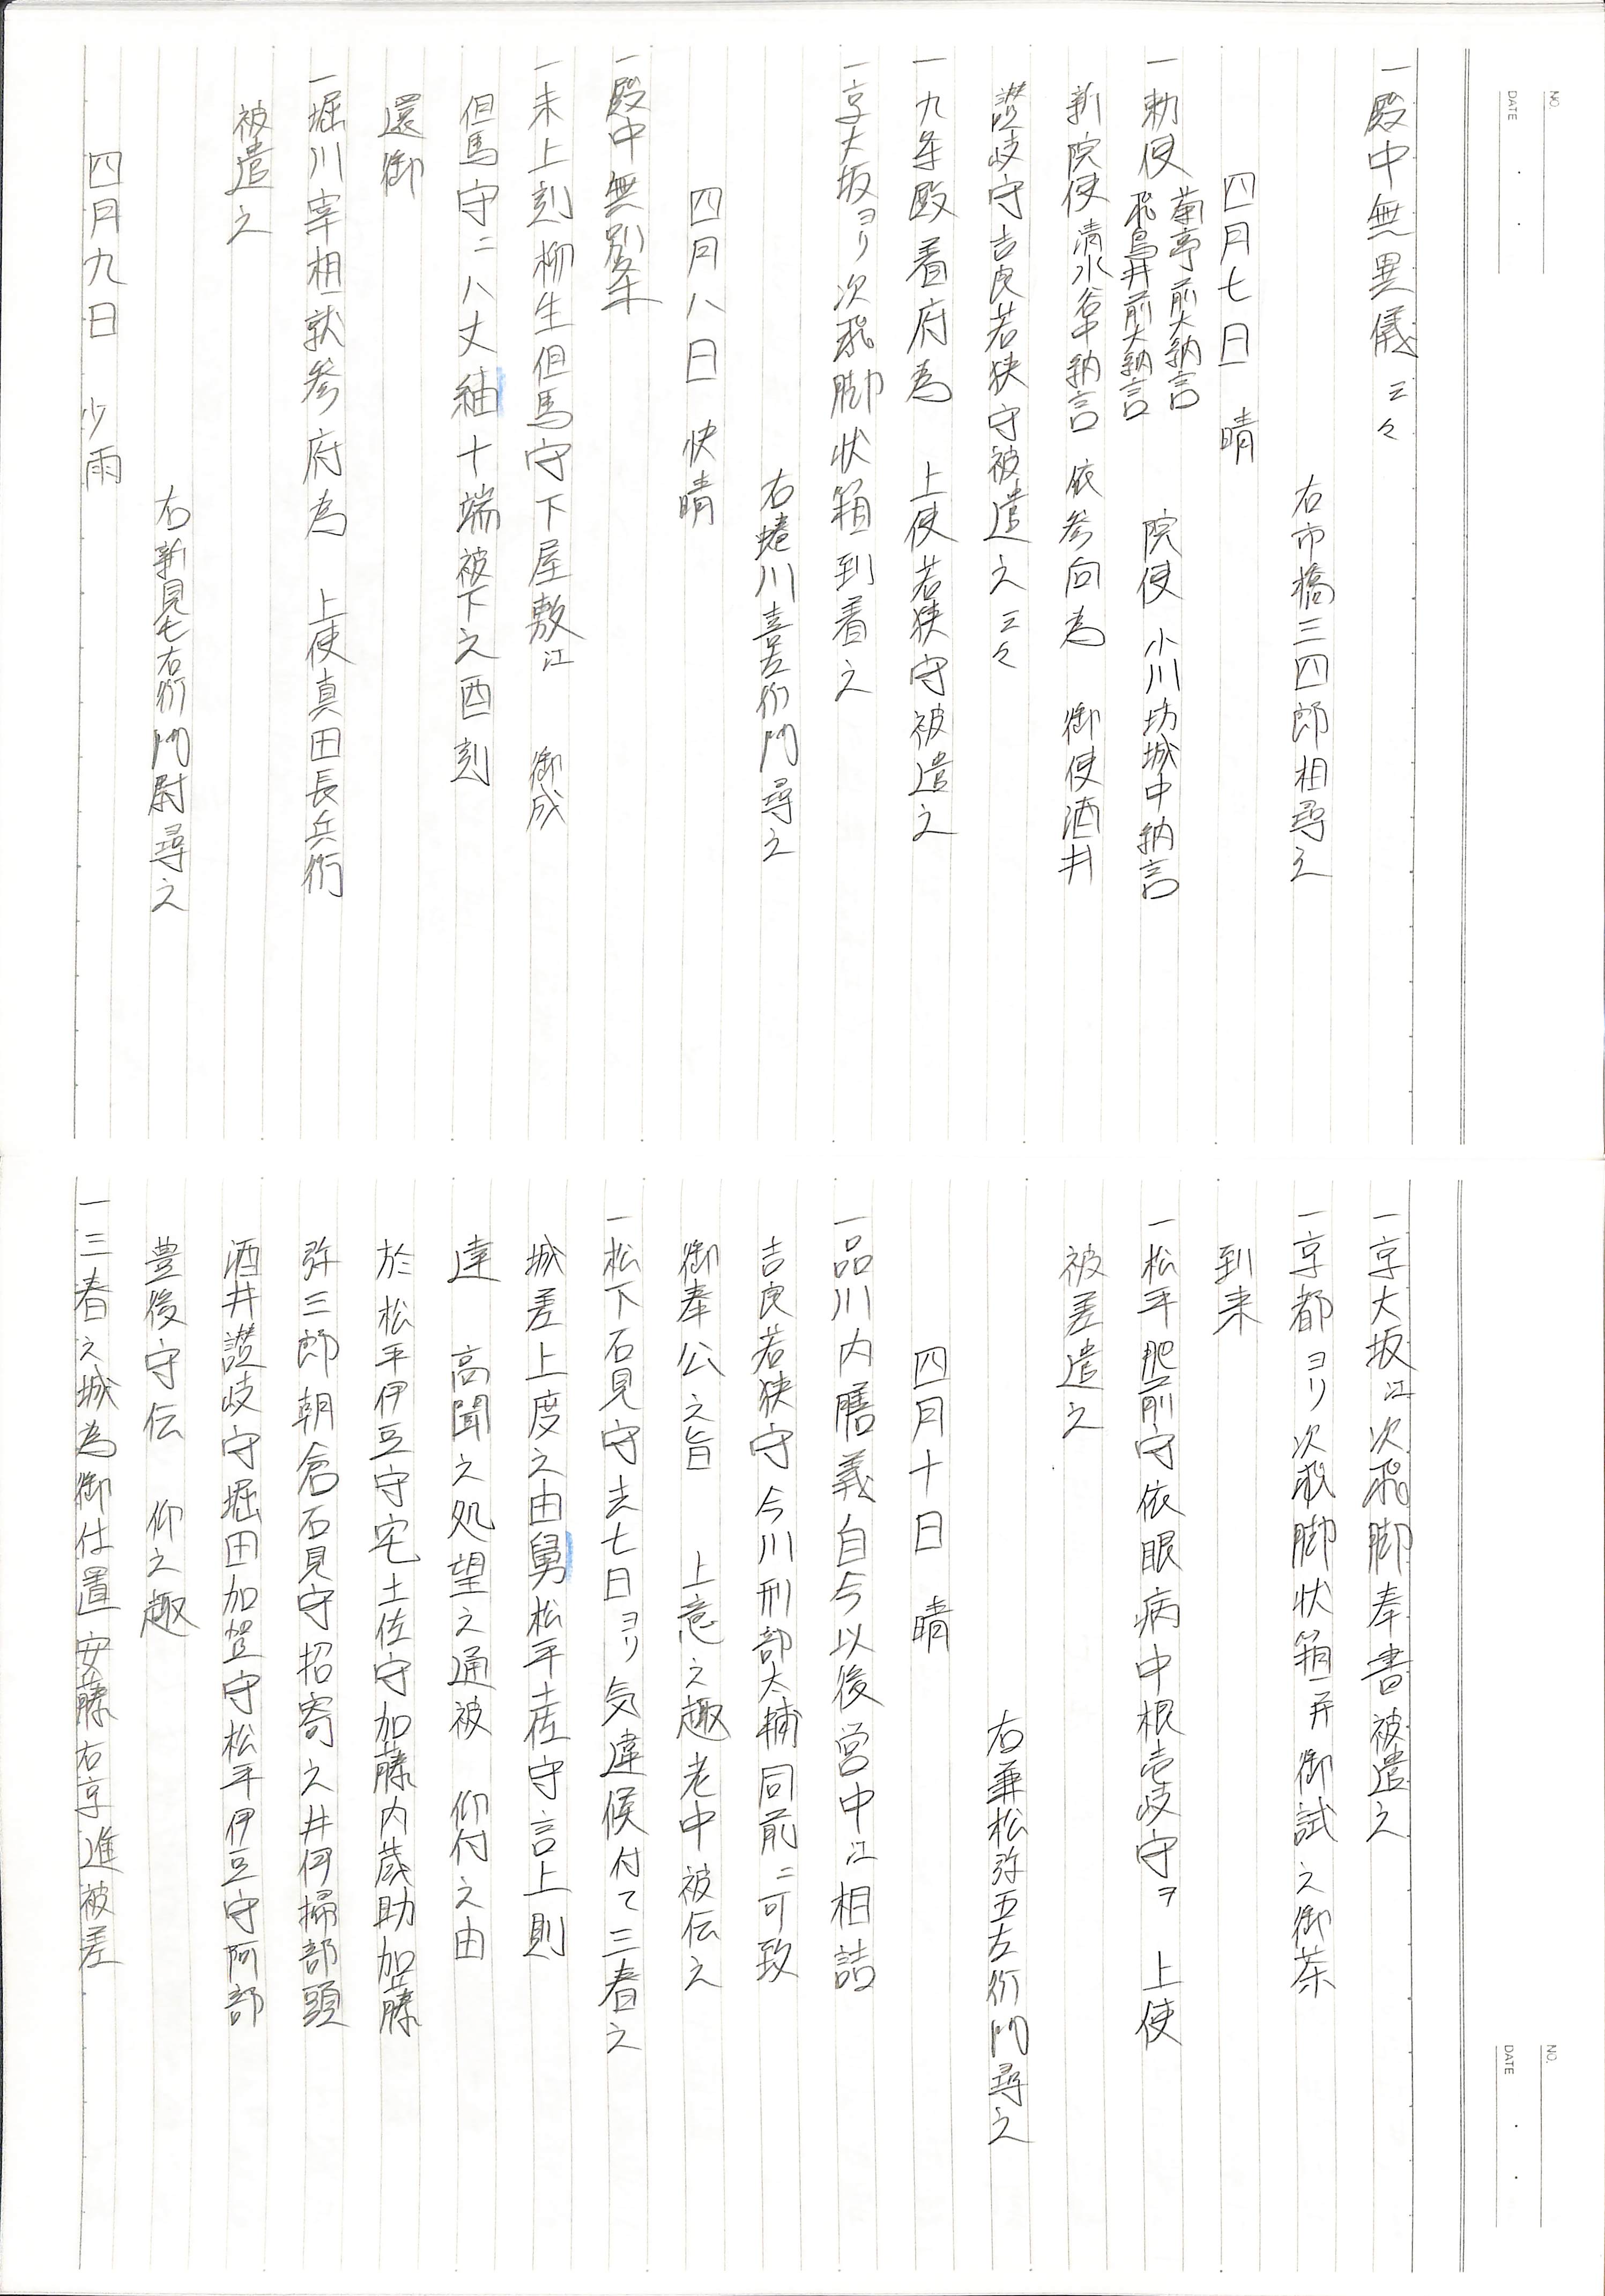 NO.
DATE
一殿中無異儀云々
右市橋三四郎相尋之
四月七日 晴
一勅使 菊亭前大納言 飛鳥井前大納言 院使 小川坊城中納言
新院使 清水谷中納言 依参向為 御使酒井
讃岐守吉良若狭守被遣之云々
一九条殿着府為 上使若狭守被遣之
一京大坂ヨリ次飛脚状箱到着之
右蜷川喜左衛門尋之
四月八日 快晴
一殿中無別条
一未上刻柳生但馬守下屋敷江 御成
但馬守ニ八丈紬十端被下之酉刻
還御
一堀川宰相就参府為 上使真田長兵衛
被遣之
右新見七右衛門尉尋之
四月九日 少雨
NO.
DATE
一京大坂江次飛脚奉書被遣之
一京都ヨリ次飛脚状箱并御試之御茶
到来
一松平肥前守依眼病中根壱岐守ヲ 上使
被差遣之
右兼松弥五左衛門尋之
四月十日 晴
一品川内膳義自今以後営中江相詰
吉良若狭守今川刑部太輔同前ニ可致
御奉公之旨 上意之趣老中被伝之
一松下石見守去七日ヨリ気違候付て三春之
城差上度之由舅松平土佐守言上則
達 高聞之処望之通被 仰付之由
於松平伊豆守宅土佐守加藤内蔵助加藤
弥三郎朝倉石見守招寄之井伊掃部頭
酒井讃岐守堀田加賀守松平伊豆守阿部
豊後守伝 仰之趣
一三春之城為御仕置安藤右京進被差